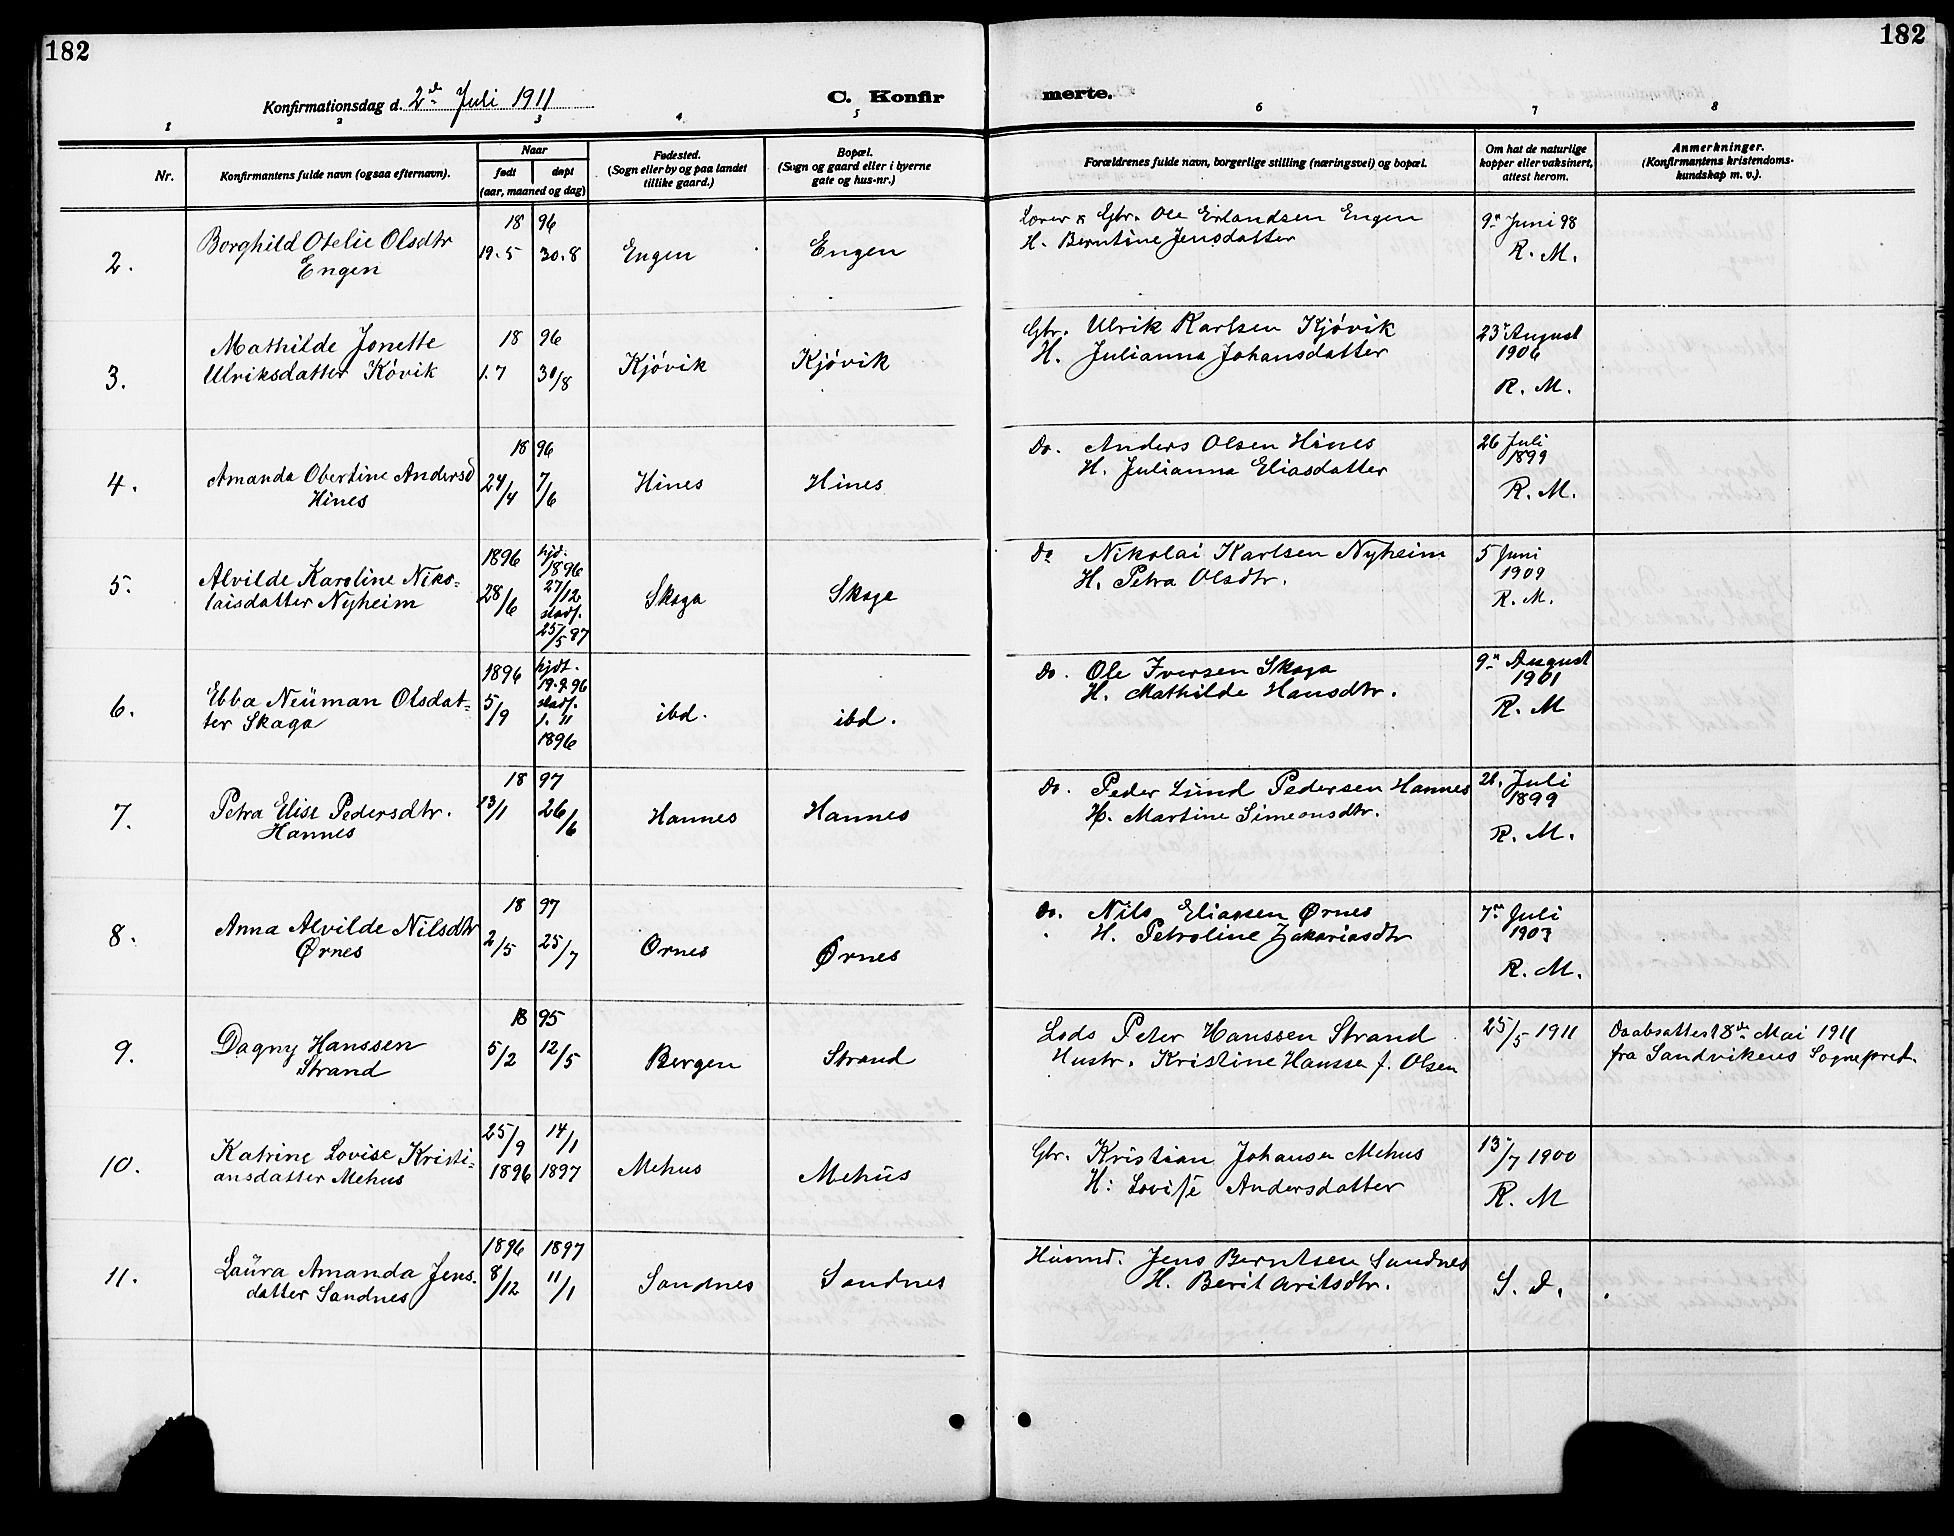 182
182
Konfirmationsdag d. 2den Juli 1911
C. Konfir
merte.
1 2 3 4 5 6 7 8
Nr.
Konfirmantens fulde navn (ogsaa efternavn).
Naar
født
døpt
(aar, maaned og dag)
Fødested.
(Sogn eller by og paa landet
tillike gaard.)
Bopæl.
(Sogn og gaard eller i byerne
gate og hus-nr.)
Forældrenes fulde navn, borgerlige stilling (næringsvei) og bopæl.
Om hat de naturlige
kopper eller vaksinert,
attest herom.
Anmerkninger.
(Konfirmantens kristendoms-
kundskap m. v.).
2.
Borghild Otelie Olsdtr
Engen
18 96
19.5 30.8
Engen
Engen
Gbr. Ole Erlandsen Engen
H. Berntine Jensdatter
9n Juni 98
R. M.
3.
Mathilde Jonette
Ulriksdatter Kövik
18 96
1.7 30/8
Kjövik
Kjövik
Gbr. Ulrik Karlsen Kjövik
H. Julianna Johansdatter
23 August
1906
R. M.
4.
Amanda Obertine Andersd
Hines
18 96
24/4 7/6
Hines
Hines
Do. Anders Olsen Hines
H. Julianna Eliasdatter
26 Juli
1899
R. M.
5.
Alvilde Karoline Niko=
laisdatter Nyheim
1896
28/6
hjd.
1896
27/12
stadf.
25/5 97
Skoga
Skoga
Do Nikolai Karlsen Nyheim
H. Petra Olsdtr.
5 Juni
1909
R. M.
6.
Ebba Neüman Olsdat=
ter Skaga
1896
5/9
hjdt.
19.9.96
stadf.
1. 11
1896
ibd.
ibd.
Do. Ole Iversen Skaga
H. Mathilde Hansdtr.
9n August
1901
R. M
7.
Petra Elise Pedersdtr.
Hannes
18 97
13/1 26/6
Hannes
Hannes
Do. Peder Lund Pedersen Hannes
H. Martine Simeonsdtr.
26. Juli
1899
R. M.
8.
Anna Alvilde Nilsdtr
Ørnes
18 97
2/5 25/7
Ornes
Ørnes
Do. Nils Eliassen Ørnes
H. Petroline Zakariasdtr
7n Juli
1903
R. M.
9.
Dagny Hanssen
Strand
18 95
5/2 12/5
Bergen
Strand
Lods Peter Hanssen Strand
Hustr. Kristine Hansse f. Olsen
25/5 1911
Daabsattest 8de Mai 1911
fra Sandvikens Sognepret.
10.
Katrine Lovise Kristi=
ansdatter Mehus
25/9 14/1
1896 1897
Mehus
Mehüs
Gbr. Kristian Johansen Mehus
H: Lovise Andersdatter
13/7 1900
R. M
11.
Laüra Amanda Jens.
datter Sandnes
1896 1897
8/12 11/1
Sandnes
Sandnes
Husmd. Jens Berntsen Sandnes
H. Berit Aritsdtr.
S. D.